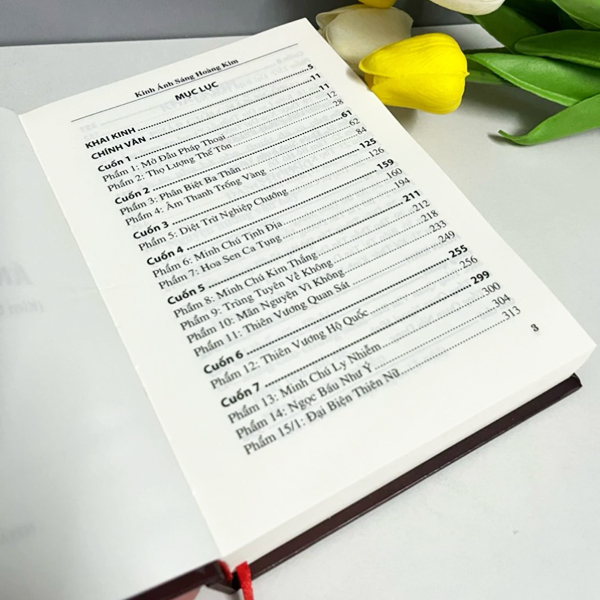 Kinh Ánh Sáng Hoàng Kim
MỤC LỤC
KHAI KINH 5
CHÍNH VĂN 11
Cuốn 1 11
Phẩm 1: Mở Đầu Pháp Thoại 12
Phẩm 2: Thọ Lượng Thế Tôn 28
Cuốn 2 61
Phẩm 3: Phân Biệt Ba Thân 62
Phẩm 4: Âm Thanh Trống Vàng 84
Cuốn 3 125
Phẩm 5: Diệt Trừ Nghiệp Chướng 126
Cuốn 4 159
Phẩm 6: Minh Chú Tịnh Địa 160
Phẩm 7: Hoa Sen Ca Tụng 194
Cuốn 5 211
Phẩm 8: Minh Chú Kim Thắng 212
Phẩm 9: Trùng Tuyên Về Không 218
Phẩm 10: Mãn Nguyện Vì Không 233
Phẩm 11: Thiên Vương Quan Sát 249
Cuốn 6 255
Phẩm 12: Thiên Vương Hộ Quốc 256
Cuốn 7 299
Phẩm 13: Minh Chú Ly Nhiễm 300
Phẩm 14: Ngọc Báu Như Ý 304
Phẩm 15/1: Đại Biện Thiên Nữ 313
3